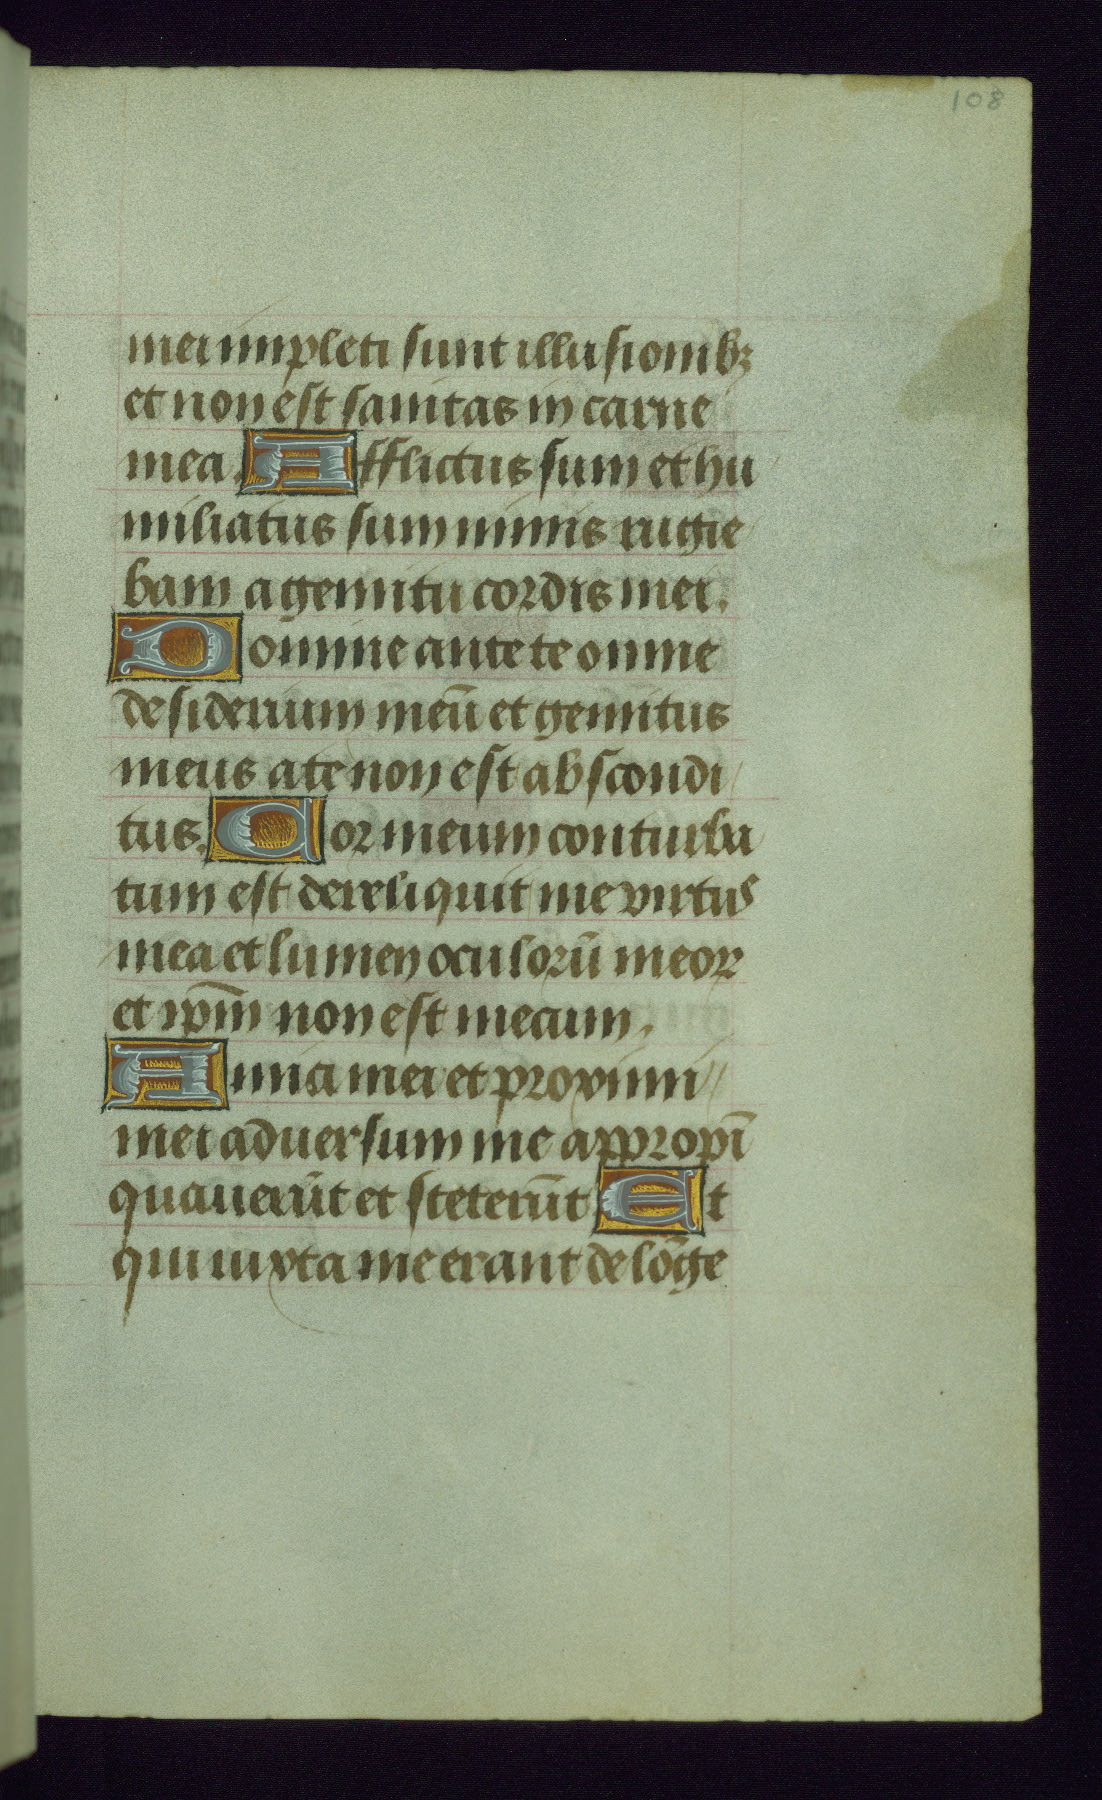 108
mei impleti sunt illusionibꝫ
et non est sanitas in carne
mea. Afflictus sum et hu
miliatus sum nimis rugie
bam a gemitu cordis mei.
Domine ante te omne
desiderium meū et gemitus
meus a te non est abscondi
tus. Cor meum conturba
tum est dereliquit me virtus
mea et lumen oculorū meoꝝ
et ip̄m non est mecum.
Amici mei et proximi
mei adversum me appropī
quauerūt et steterūt Et
qui iuxta me erant de lōge